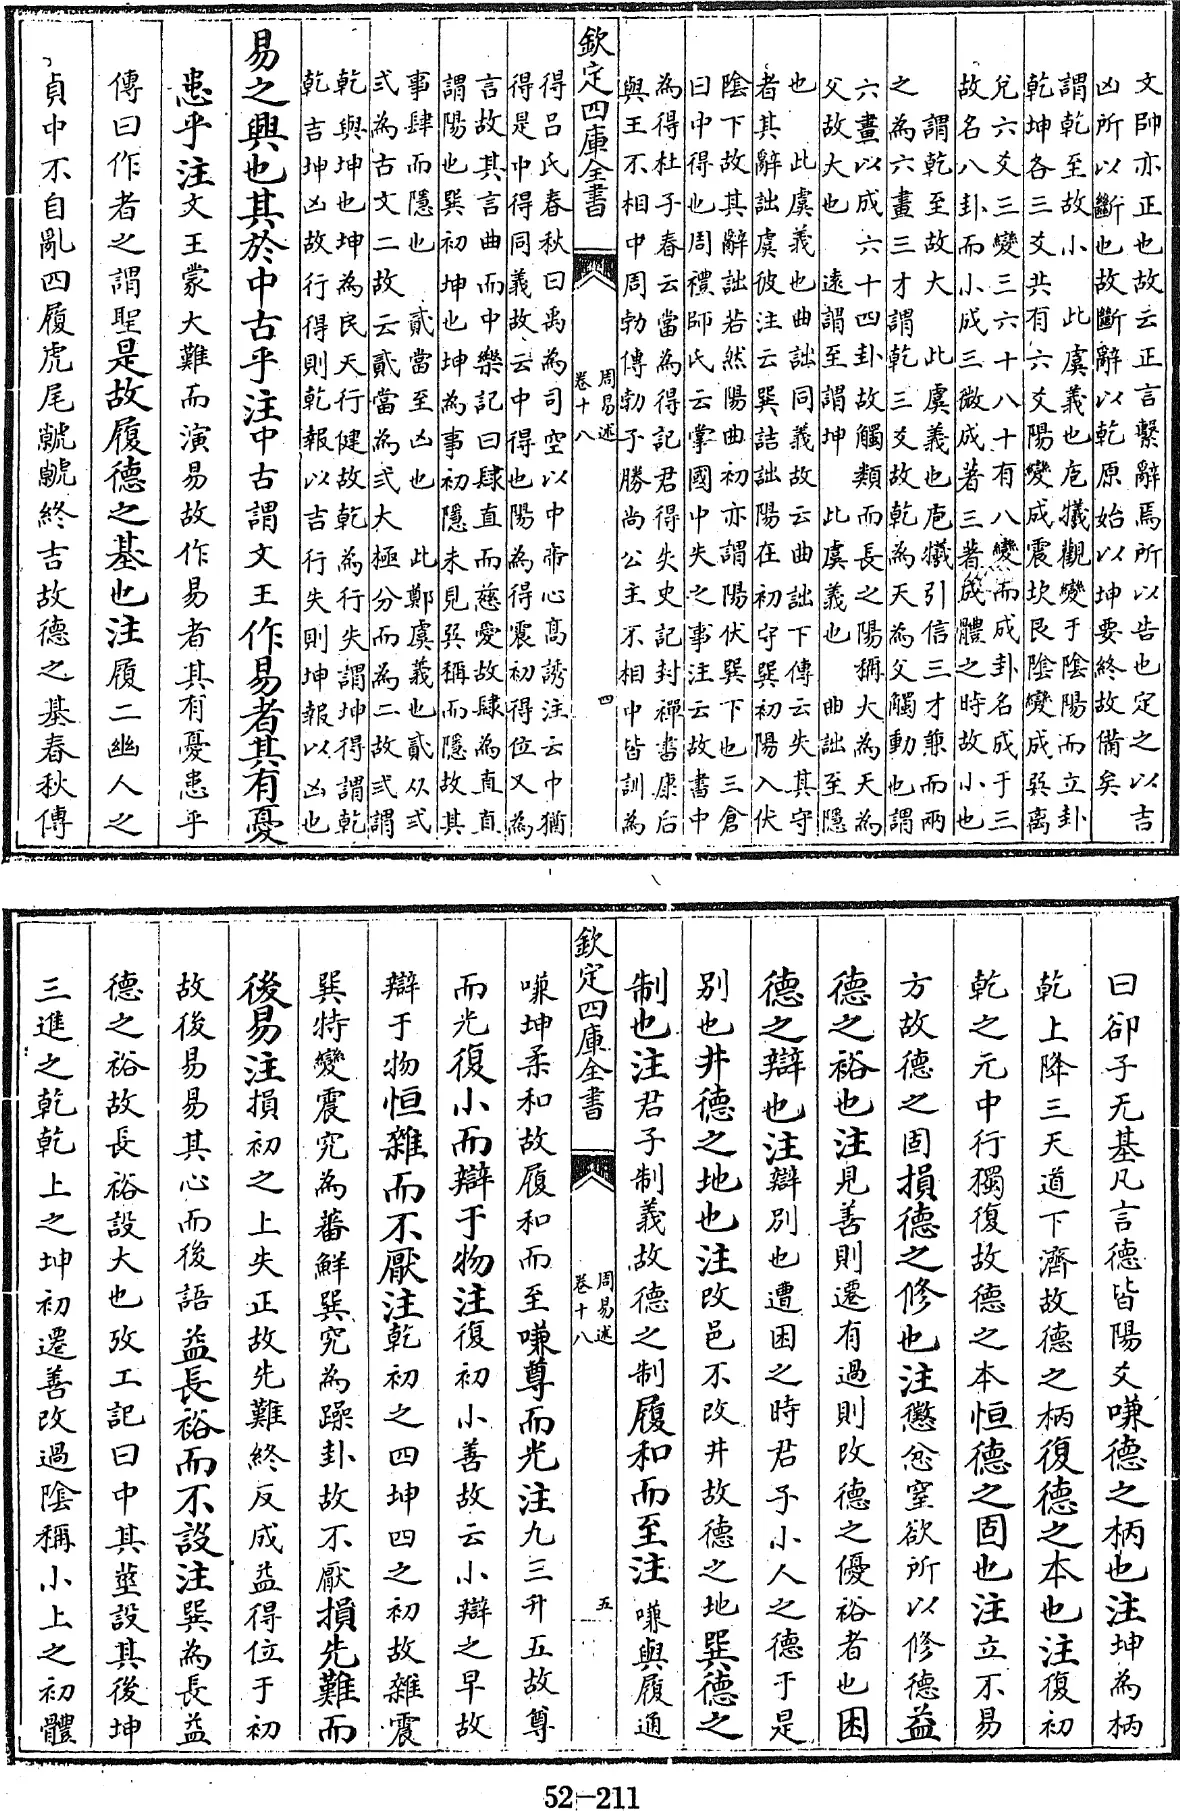 文帥亦正也故云正言繫辭焉所以告也定之以吉
凶所以斷也故斷辭以乾原始以坤要終故備矣
謂乾至故小　此虞義也庖犧觀變于陰陽而立卦
乾坤各三爻共有六爻陽變成震坎艮陰變成巽离
兌六爻三變三六十八十有八變而成卦名成于三
故名八卦而小成三微成著三著成體之時故小也
謂乾至故大　此虞義也庖犧引信三才兼而兩
之為六畫三才謂乾三爻故乾為天為父觸動也謂
六畫以成六十四卦故觸類而長之陽稱大為天為
父故大也　遠謂至謂坤　此虞義也　曲詘至隱
也　此虞義也曲詘同義故云曲詘下傳云失其守
者其辭詘虞彼注云巽詰詘陽在初守巽初陽入伏
陰下故其辭詘若然陽曲初亦謂陽伏巽下也三倉
曰中得也周禮師氏云掌國中失之事注云故書中
為得杜子春云當為得記君得失史記封禪書康后
與王不相中周勃傳勃子勝尚公主不相中皆訓為
欽定四庫全書
周易述
卷十八
四
得呂氏春秋曰禹為司空以中帝心高誘注云中猶
得是中得同義故云中得也陽為得震初得位又為
言故其言曲而中樂記曰肆直而慈愛故肆為直直
謂陽也巽初坤也坤為事初隱未見巽稱而隱故其
事肆而隱也　貳當至凶也　此鄭虞義也貳从弍
弍為古文二故云貳當為弍大極分而為二故弍謂
乾與坤也坤為民天行健故乾為行失謂坤得謂乾
乾吉坤凶故行得則乾報以吉行失則坤報以凶也
易之興也其於中古乎注中古謂文王作易者其有憂
患乎注文王蒙大難而演易故作易者其有憂患乎
傳曰作者之謂聖是故履德之基也注履二幽人之
貞中不自亂四履虎尾虩虩終吉故德之基春秋傳
曰卻子无基凡言德皆陽爻嗛德之柄也注坤為柄
乾上降三天道下濟故德之柄復德之本也注復初
乾之元中行獨復故德之本恒德之固也注立不易
方故德之固損德之修也注懲忿窒欲所以修德益
德之裕也注見善則遷有過則改德之優裕者也困
德之辯也注辯別也遭困之時君子小人之德于是
別也井德之地也注改邑不改井故德之地巽德之
制也注君子制義故德之制履和而至注嗛與履通
欽定四庫全書
周易述
卷十八
五
嗛坤柔和故履和而至嗛尊而光注九三升五故尊
而光復小而辯于物注復初小善故云小辯之早故
辯于物恒雜而不厭注乾初之四坤四之初故雜震
巽特變震究為蕃鮮巽究為躁卦故不厭損先難而
後易注損初之上失正故先難終反成益得位于初
故後易易其心而後語益長裕而不設注巽為長益
德之裕故長裕設大也攷工記曰中其莖設其後坤
三進之乾乾上之坤初遷善改過陰稱小上之初體
52-211